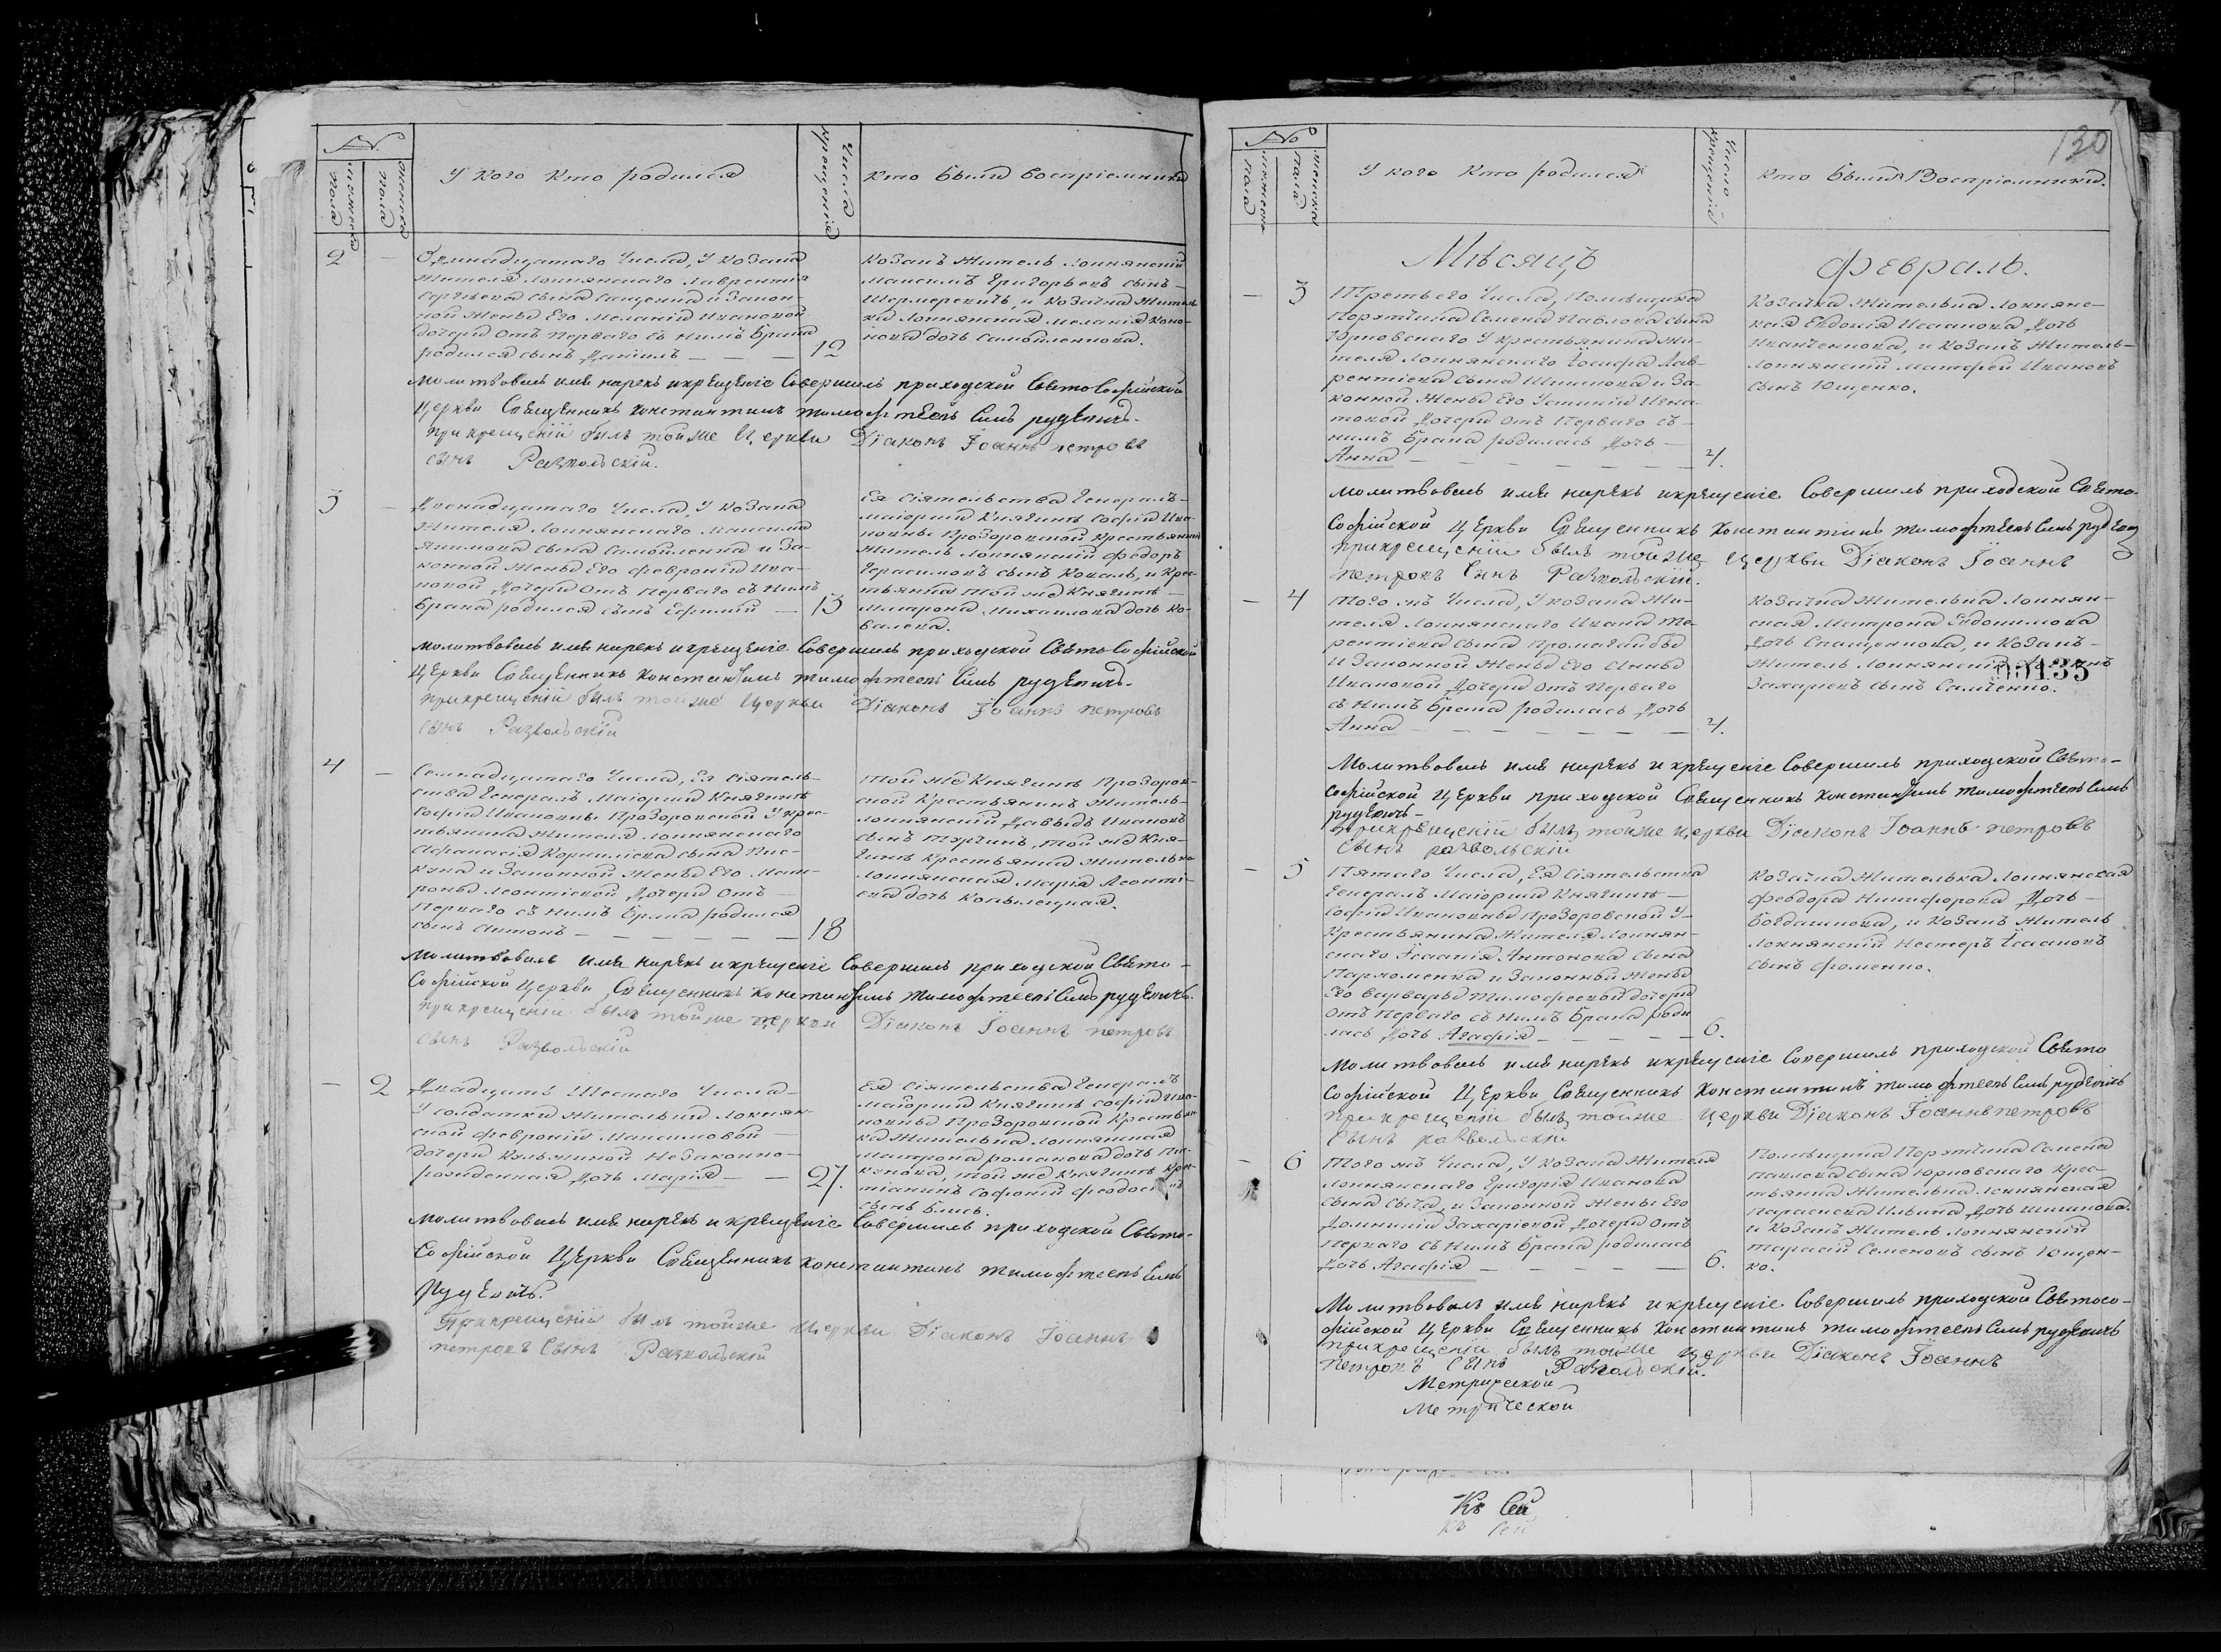 №
мужеска пола
женска пола
У кого кто родился
Число крещенія
Кто были воспріемники
2
Одинадцатаго Числа, у козака
жителя Локнянскаго Лаврентія
Сергѣева сына Сащенка и Закон-
ной жены Его Меланіи Ивановой
дочери отъ перваго съ нимъ брака
родился сынъ Даніилъ — — — 12
Козакъ житель Локнянскій
Максимъ Григорьевъ сынъ
и козачка житель
ка Локнянская Меланія Коно-
нова дочь Самойленкова.
Молитвовалъ имя нарекъ и крещеніе совершилъ приходской Свято Софійской
Церкви Священникъ Константинъ Тимофѣевъ сынъ Рудевичъ.
При крещеніи былъ тойже Церкви Діаконъ Іоаннъ Петровъ
сынъ Развольскій.
3
Двенадцатаго Числа, у козака
жителя Локнянскаго Максима
Якимова сына Самойленка и За-
конной жены Его Февроніи Ива-
новой дочери отъ перваго съ нимъ
брака родился сынъ Ефимій — 13
Ея Сіятельства Генералъ-
маіорши Княгинѣ Софіи Ива-
новны Прозоровской крестьянинъ
житель Локнянскій Федоръ
Герасимовъ сынъ Коваль, и крес-
тьянка той же Княгинѣ —
Матрона Михаилова дочь Ко-
валева.
Молитвовалъ имя нарекъ и крещеніе совершилъ приходской Свято Софійской
Церкви Священникъ Константинъ Тимофѣевъ сынъ Рудевичъ.
При крещеніи былъ тойже Церкви Діаконъ Іоаннъ Петровъ
сынъ Развольскій
4
Семнадцатаго Числа, Ея Сіятель-
ства Генералъ Маіорши Княгинѣ
Софіи Ивановны Прозоровской у крес-
тьянина жителя Локнянскаго
Афанасія Корниліева сына Пис-
куна и Законной жены Его Мат-
роны Леонтіевой дочери отъ —
перваго съ нимъ брака родился
сынъ Антонъ — — — — — 18
Той же Княгинѣ Прозоров-
ской крестьянинъ житель
Локнянскій Давыдъ Ивановъ
сынъ, той же Кня-
гинѣ крестьянка жителька
Локнянская Марія Леонті-
ева дочь Копылецкая.
Молитвовалъ имя нарекъ и крещеніе совершилъ приходской Свято-
Софійской Церкви Священникъ Константинъ Тимофѣевъ сынъ Рудевичъ.
При крещеніи былъ тойже Церкви Діаконъ Іоаннъ Петровъ
сынъ Развольскій
2
Двадцать Шестаго Числа
У солдатки жительки Локнян-
ской Февроніи Максимовой —
дочери Кузьминой Незаконно-
рожденная дочь Марія — — 27.
Ея Сіятельства Генералъ
маіорши Княгинѣ Софіи Ива-
новны Прозоровской крестьян
ка жителька Локнянская
Матрона Романова дочь Пис-
кунова, той же Княгинѣ крес-
тіанинъ Софоній
сынъ
Молитвовалъ имя нарекъ и крещеніе совершилъ приходской Свято-
Софійской Церкви Священникъ Константинъ Тимофѣевъ сынъ
Рудевичъ.
При крещеніи былъ тойже Церкви Діаконъ Іоаннъ
Петровъ сынъ Развольскій
130
№
мужеска пола
женска пола
У кого кто родился
Число крещеній
Кто были Воспріемники.
Мѣсяцъ Февраль.
3
Третьего Числа, Помѣщика
Порутчика Семена Павлова сына
Юрковскаго у крестьянина жи-
теля Локнянскаго Іосифа Лав-
рентіева сына Шишкова и За-
конной жены Его Устиніи Игна-
товой дочери отъ перваго съ —
нимъ брака родилась дочь —
Анна — — — — — — 4.
Козачка жителька Локнянс-
кая Евдокія Исаакова дочь
Иванченкова, и козакъ житель
Локнянскій Матфей Ивановъ
сынъ Ющенко.
Молитвовалъ имя нарекъ и крещеніе совершилъ приходской Свято-
Софійской Церкви Священникъ Константинъ Тимофѣевъ сынъ Рудевичъ
при крещеніи былъ тойже Церкви Діаконъ Іоаннъ
Петровъ сынъ Развольскій.
4
Того жъ Числа, у козака жи-
теля Локнянскаго Ивана Те-
рентіева сына
и Законной жены Его Анны
Ивановой дочери отъ перваго
съ нимъ брака родилась дочь
Анна — — — — — — 4.
Козачка жителька Локнян-
ская Матрона Евдокимова
дочь Сащенкова, и козакъ
житель Локнянскій
Захаріевъ сынъ Самченко.
00135
Молитвовалъ имя нарекъ и крещеніе совершилъ приходской Свято-
Софійской Церкви приходской Священникъ Константинъ Тимофѣевъ сынъ
Рудевичъ —
При крещеніи былъ тойже Церкви Діаконъ Іоаннъ Петровъ
сынъ Развольскій
5
Пятаго Числа, Ея Сіятельства
Генералъ Маіорши Княгинѣ —
Софіи Ивановны Прозоровской у
крестьянина жителя Локнян-
скаго Іоанія Антонова сына
Пархоменка и Законны жены
Его Варвары Тимофеевой дочери
отъ перваго съ нимъ брака роди
лась дочь Агафія — — — — 6.
Козачка жителька Локнянская
Феодора Никифорова дочь —
Богданкова, и козакъ житель
Локнянскій Нестеръ Исааковъ
сынъ Фоменко.
Молитвовалъ имя нарекъ и крещеніе совершилъ приходской Свято
Софійской Церкви Священникъ Константинъ Тимофѣевъ сынъ Рудевичъ
при крещеніи былъ тойже Церкви Діаконъ Іоаннъ Петровъ
сынъ Развольскій
6
Того жъ Числа, у козака жителя
Локнянскаго Григорія Иванова
сына Сыча, и Законной жены Его
Домникіи Захаріевой дочери отъ
перваго съ нимъ брака родилась
дочь Агафія — — — — — 6.
Помѣщика Порутчика Семена
Павлова сына Юрковскаго крес-
тьянка жителька Локнянская
Параскева Ильина дочь Шишкова
и козакъ житель Локнянскій
Тарасій Семеновъ сынъ Ющен-
ко.
Молитвовалъ имя нарекъ и крещеніе совершилъ приходской Святосо-
фійской Церкви Священникъ Константинъ Тимофѣевъ сынъ Рудевичъ
при крещеніи былъ тойже Церкви Діаконъ Іоаннъ
Петровъ сынъ Развольскій.
Метрической
Метрической
Къ Сей
Къ Сей